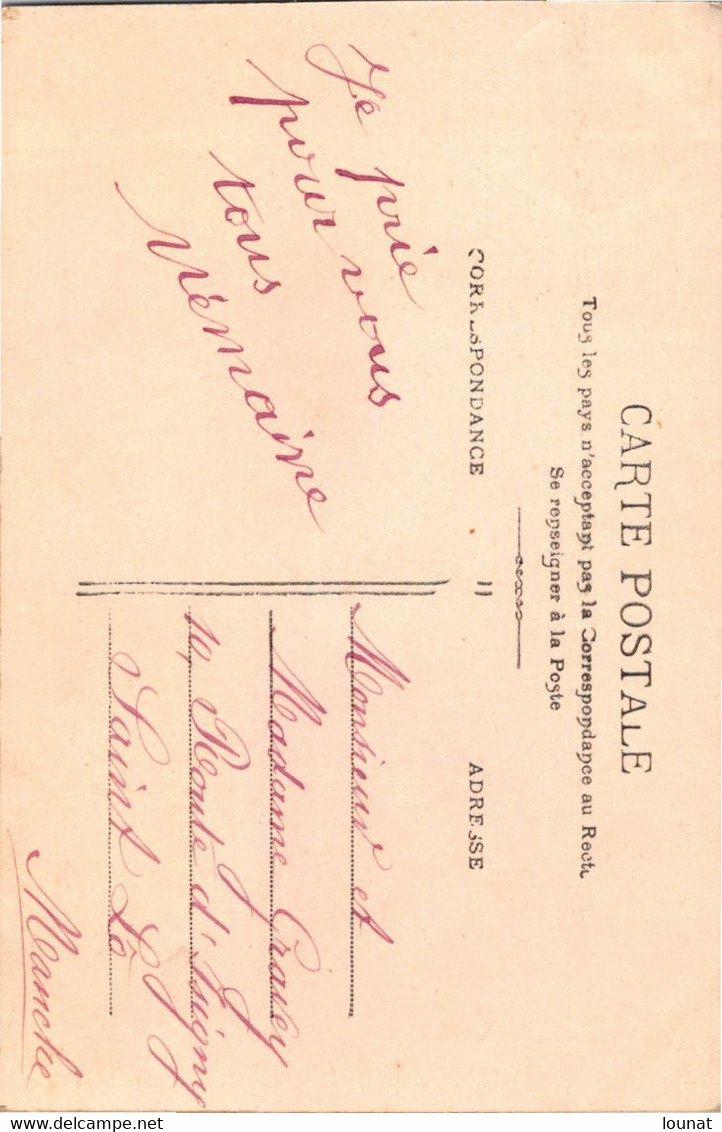 CARTE POSTALE
Tous les pays n'acceptant pas la Correspondance au Recto
Se renseigner à la Poste
CORRESPONDANCE
ADRESSE
Je prie
pour vous
tous
Monsieur et
Madame
10, Route d'Isigny
Saint Lô
Manche
delcampe.net
lounat